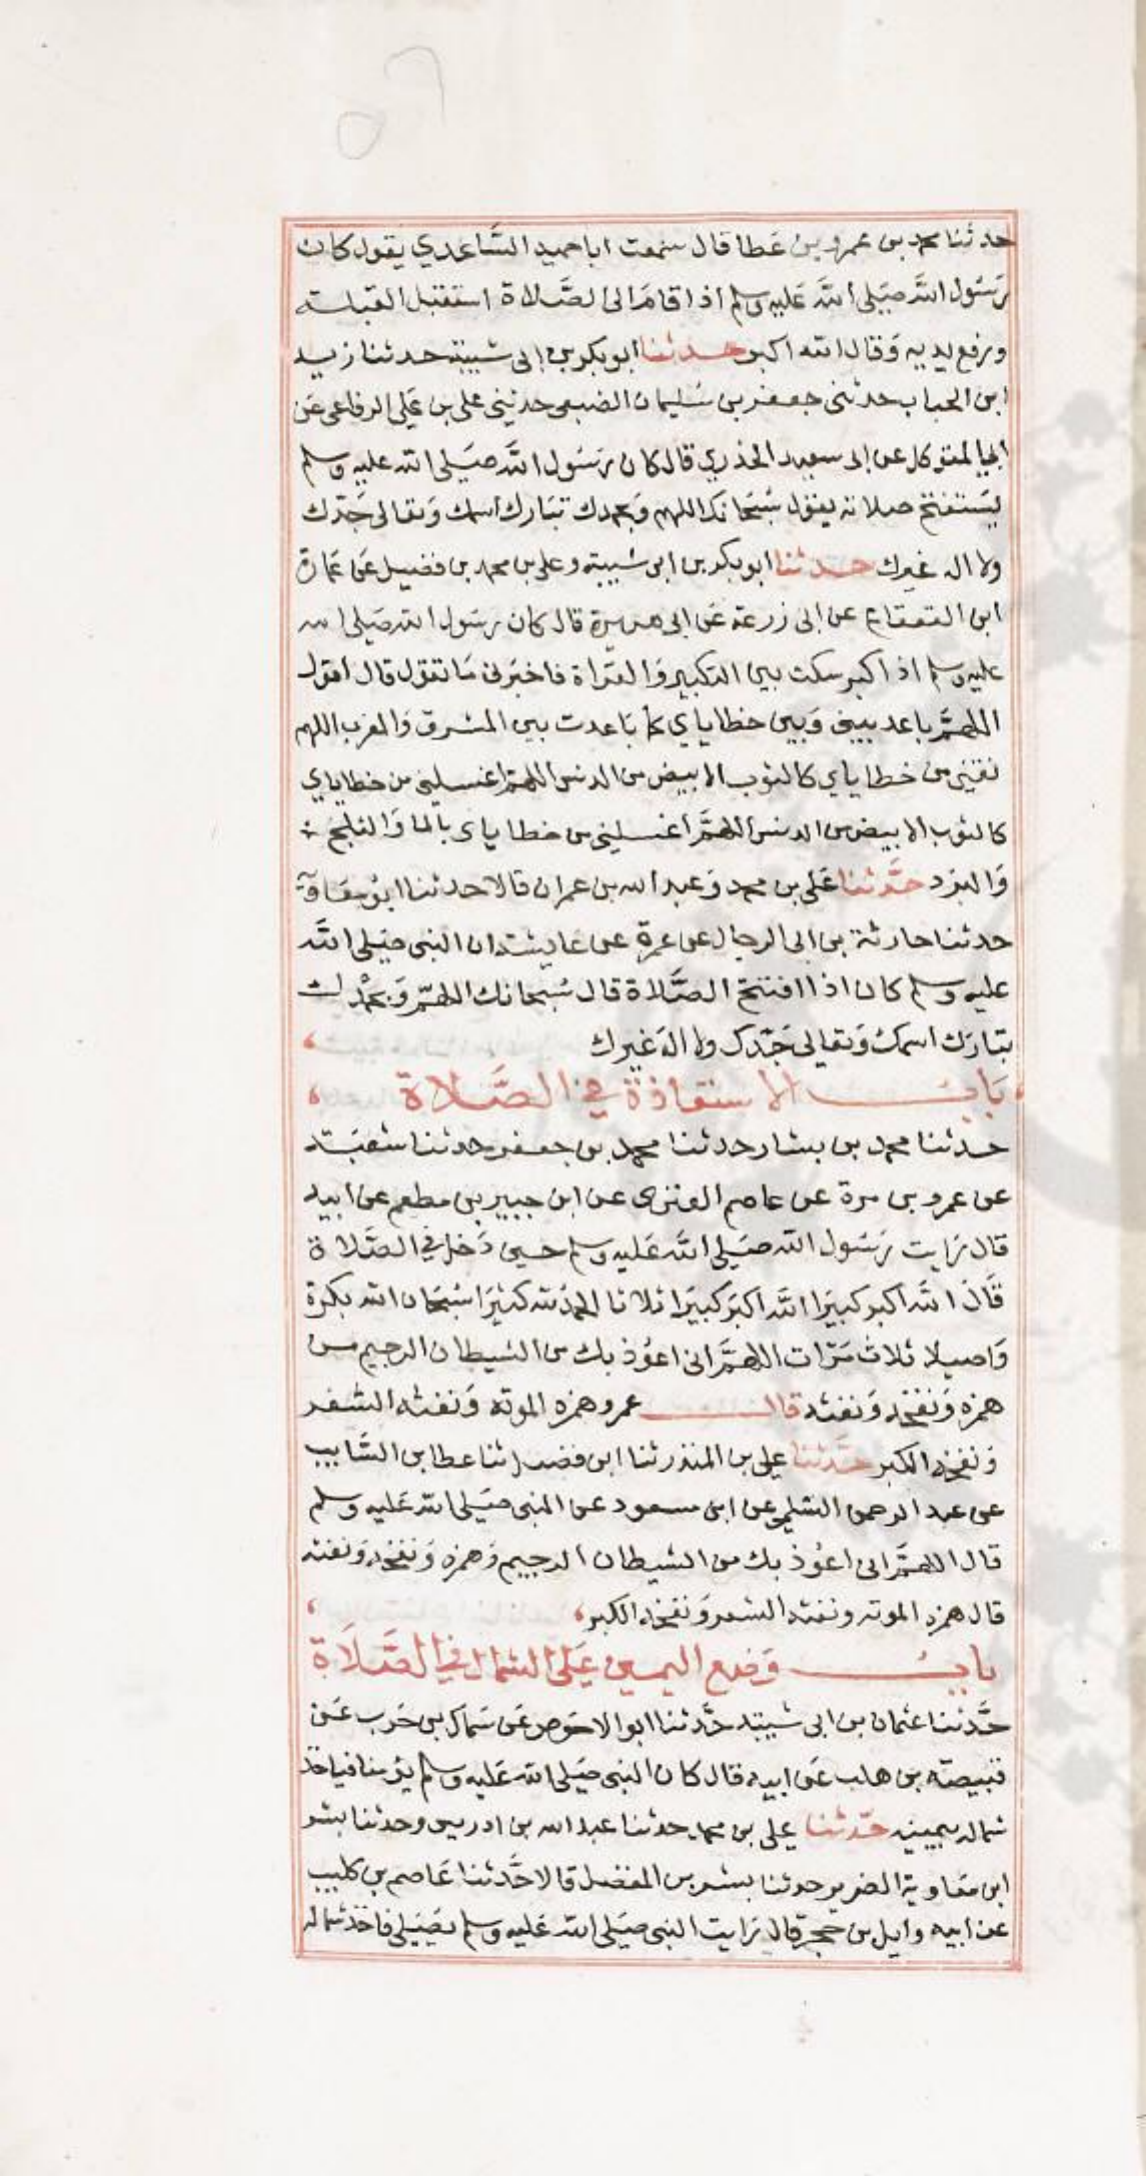 حدثنا محمد بن عمرو بن عطا قال سمعت ابا حميد الساعدي يقول كان
رسول الله صلى الله عليه وسلم اذا قام الى الصلاة استقبل القبلة
ورفع يديه وقال الله اكبر حدثنا ابو بكر بن ابى شيبة حدثنا زيد
ابن الحباب حدثنى جعفر بن سليمان الضبعى حدثنى على بن على الرفاعى عن
ابى المتوكل عن ابى سعيد الخذري قال كان رسول الله صلى الله عليه وسلم
يستفتح صلاته يقول سبحانك اللهم وبحمدك تبارك اسمك وتعالى جدك
ولا اله غيرك حدثنا ابو بكر بن ابى شيبة وعلى بن محمد بن فضيل عن عمارة
ابن القعقاع عن ابى زرعة عن ابى هريرة قال كان رسول الله صلى الله
عليه وسلم اذا كبر سكت بين التكبير والقراة فاخبرنى ما تقول قال اقول
اللهم باعد بينى وبين خطاياي كما باعدت بين المشرق والمغرب اللهم
نقينى من خطاياي كالثوب الابيض من الدنس اللهم اغسلينى من خطاياي
كالثوب الابيض من الدنس اللهم اغسلينى من خطاياى بالما والثلج
والبرد حدثنا على بن محمد وعبد الله بن عمران قالا حدثنا ابو معاوية
حدثنا حارثة بن ابى الرجال عن عمرة عن عايشة ان النبى صلى الله
عليه وسلم كان اذا افتتح الصلاة قال سبحانك اللهم وبحمدك
تبارك اسمك وتعالى جدك ولا اله غيرك
باب الاستعاذة في الصلاة
حدثنا محمد بن بشار حدثنا محمد بن جعفر حدثنا شعبة
عن عمرو بن مرة عن عاصم العنزى عن ابن جبير بن مطعم عن ابيه
قال رايت رسول الله صلى الله عليه وسلم حين دخل في الصلاة
قال الله اكبر كبيرا الله اكبر كبيرا ثلاثا الحمد لله كثيرا سبحان الله بكرة
واصيلا ثلاث مرات اللهم انى اعوذ بك من الشيطان الرجيم من
همزه ونفخه ونفثه قال عمرو همزه الموتة ونفثه الشعر
ونفخه الكبر حدثنا علي بن المنذر ثنا ابن فضيل ثنا عطا بن السايب
عن عبد الرحمن السلمى عن ابن مسعود عن النبى صلى الله عليه وسلم
قال اللهم انى اعوذ بك من الشيطان الرجيم وهمزه ونفخه ونفثه
قال همزه الموته ونفثه الشعر ونفخه الكبر
باب وضع اليمين على الشمال في الصلاة
حدثنا عثمان بن ابى شيبة حدثنا ابو الاحوص عن سماك بن حرب عن
قبيصة بن هلب عن ابيه قال كان النبى صلى الله عليه وسلم يؤمنا فياخذ
شماله بيمينه حدثنا علي بن محمد حدثنا عبد الله بن ادريس وحدثنا بشر
ابن معاوية الضرير حدثنا بشر بن المفضل قالا حدثنا عاصم بن كليب
عن ابيه وايل بن حجر قال رايت النبى صلى الله عليه وسلم يصلى فاخذ شماله